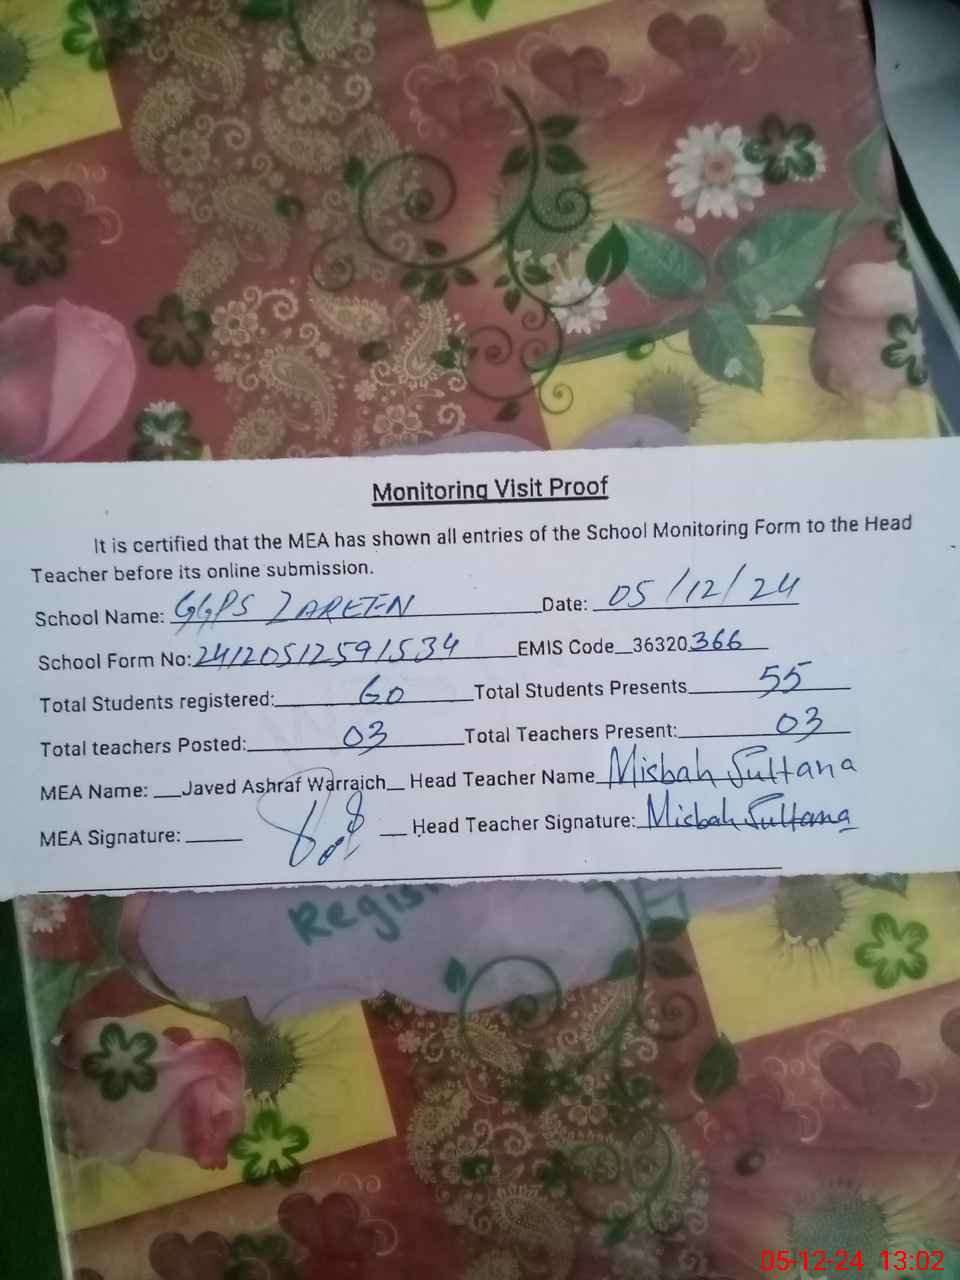 Monitoring Visit Proof
It is certified that the MEA has shown all entries of the School Monitoring Form to the Head
Teacher before its online submission.
School Name: GGPS ZAREEN Date: 05/12/24
School Form No: 24120512591534 EMIS Code 36320366
Total Students registered: 60 Total Students Presents 55
Total teachers Posted: 03 Total Teachers Present: 03
MEA Name: Javed Ashraf Warraich Head Teacher Name Misbah Sultana
MEA Signature: Head Teacher Signature: Misbah Sultana
Regis
05-12-24 13:02